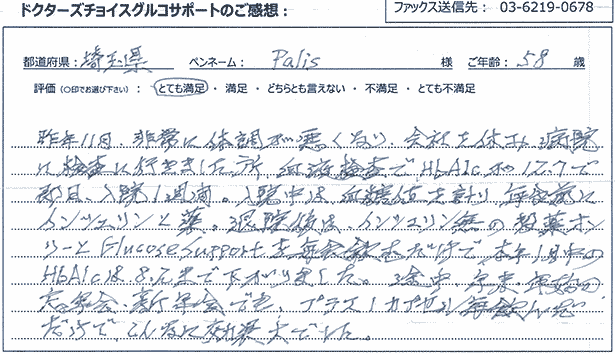 ドクターズチョイスグルコサポートのご感想：
ファックス送信先： 03-6219-0678
都道府県：埼玉県 ペンネーム： Palis 様 ご年齢：58 歳
評価（○印でお選び下さい）： とても満足 ・ 満足 ・ どちらとも言えない ・ 不満足 ・ とても不満足
昨年11月、非常に体調が悪くなり、会社を休み、病院
に検査に行きました所、血液検査でHbA1cが12.7で
即日、入院1週間。入院中は血糖値を計り、毎食前に
インシュリンと薬。退院後は、インシュリン無の投薬オン
リーとGlucose Supportを毎食飲むだけで、本年1月中の
HbA1cは8.2まで下がりました。途中、年末年始の
忘年会、新年会でも、プラス1カプセル毎飲んだ
だけで、こんなに効果大でした。